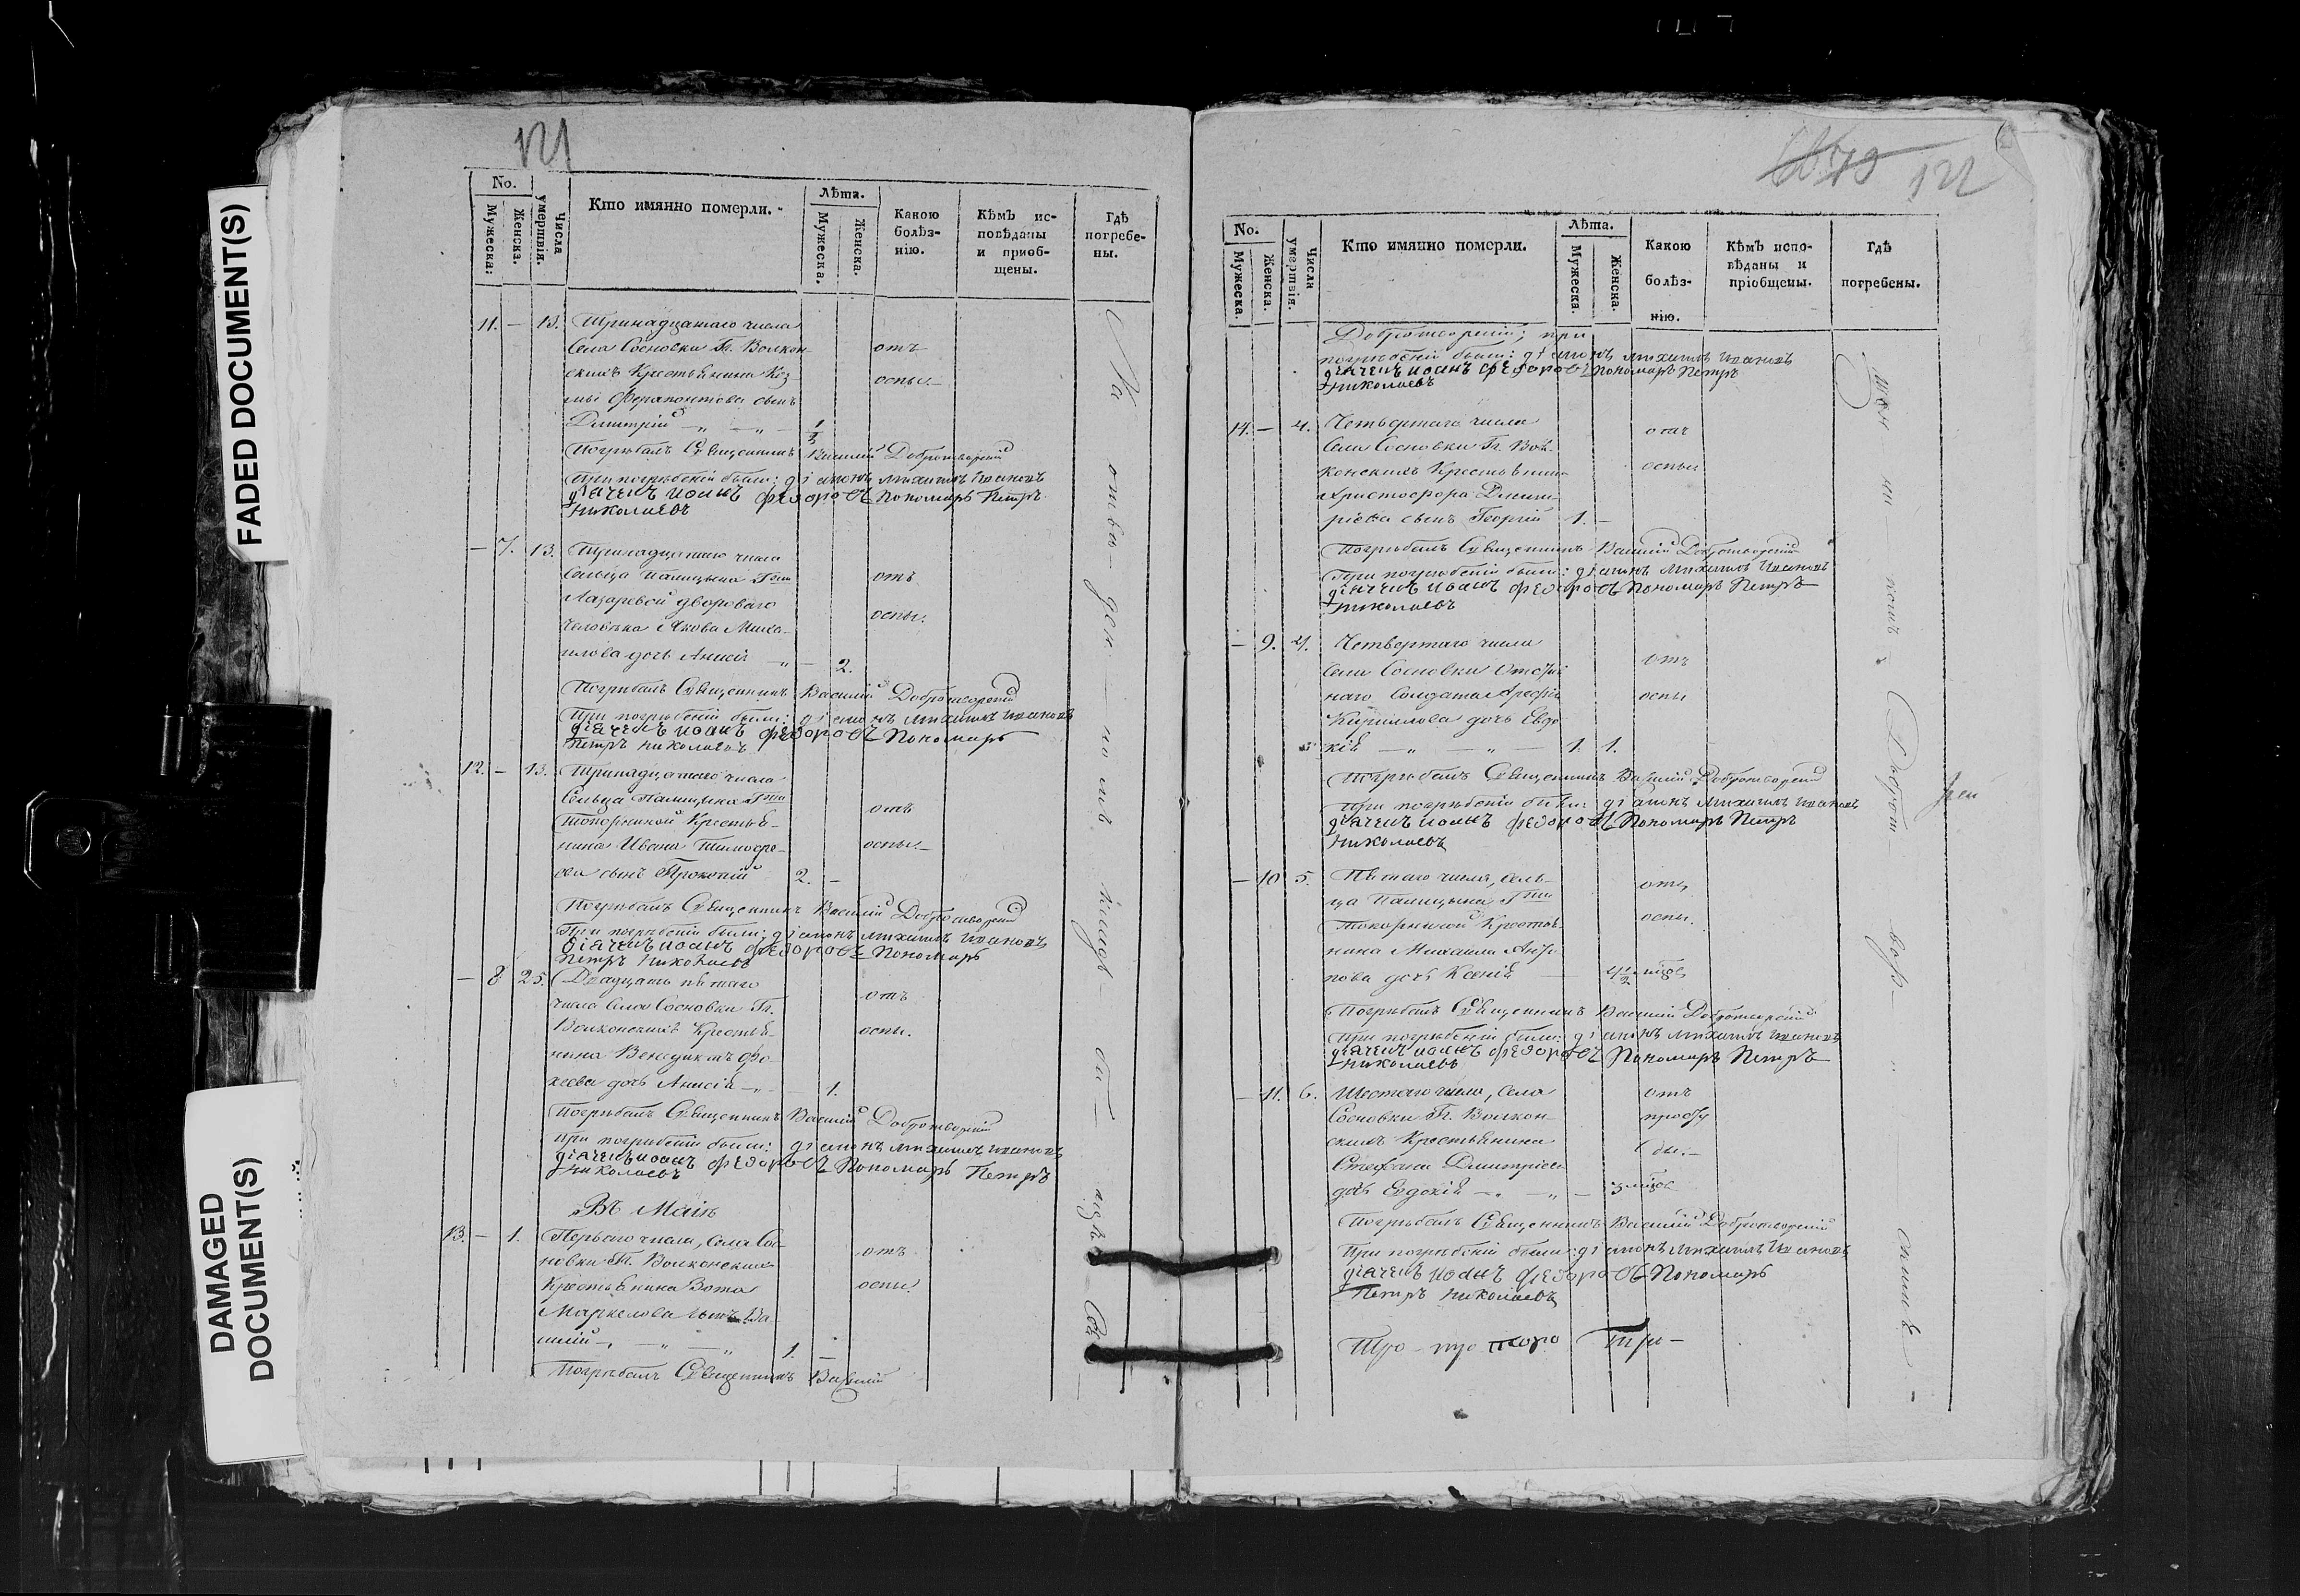 121
No.
Мужеска.
Женска.
Числа умертвія.
Кто имянно померли.
Лѣта.
Мужеска.
Женска.
Какою болѣз-
нію.
Кѣмъ ис-
повѣданы
и приоб-
щены.
Гдѣ
погребе-
ны.
11. — 13. Тринадцатаго числа
Села Сосновки Гг. Волкон
скихъ Крестьянина Коз- отъ
мы Ферапонтова сынъ оспы.
Димитрій — „ — „ — 1/2
Погрѣбалъ Священникъ Василій Добротворскій
При погрѣбеніи были: діаконъ михаилъ Ивановъ
дьячекъ иоанъ федоровъ Пономарь Петръ
николаевъ
— 7. 13. Тринадцатаго числа
Сельца Палицына Гжи отъ
Лазаревой двороваго
человѣка Якова Миха- оспы.
илова дочь Анисія — „ — 2.
Погрѣбалъ Священникъ Василій Добротворскій
При погрѣбеніи были: діаконъ михаилъ Ивановъ
дьячекъ иоанъ федоровъ Пономарь
Петръ николаевъ
12. — 13. Тринадцатаго числа
Сельца Палицына Гжи
Крестья- отъ
нина Ивана Тимофе- оспы.
ева сынъ Прокопій 2. —
Погрѣбалъ Священникъ Василій Добротворскій
При погрѣбеніи были: діаконъ михаилъ Ивановъ
дьячекъ иоанъ федоровъ Пономарь
Петръ николаевъ
— 8 25. Двадцать пятаго
числа Села Сосновки Гг. отъ
Волконскихъ Крестья- оспы.
нина Венедикта Фо-
кеева дочь Анисія — „ — 1.
Погрѣбалъ Священникъ Василій Добротворскій
При погрѣбеніи были: діаконъ михаилъ Ивановъ
дьячекъ иоанъ федоровъ Пономарь Петръ
николаевъ
Въ Маіѣ
13. — 1. Перваго числа, Села Сос-
новки Гг. Волконскихъ отъ
Крестьянина Зота оспы.
Маркелова сынъ Ва-
силій — „ — „ 1. —
Погрѣбалъ Священникъ Василій
На отведенномъ кладбищѣ
122
No.
Мужеска.
Женска.
Числа умертвія.
Кто имянно померли.
Лѣта.
Мужеска.
Женска.
Какою
болѣз-
нію.
Кѣмъ испо-
вѣданы и
пріобщены.
Гдѣ
погребены.
Добротворскій; при
погрѣбеніи были: діаконъ михаилъ Ивановъ
дьячекъ иоанъ федоровъ Пономарь Петръ
николаевъ
14. — 4. Четвертаго числа отъ
Села Сосновки Гг. Вол-
конскихъ Крестьянина оспы
Христофора Дмит-
ріева сынъ Георгій 1. —
Погрѣбалъ Священникъ Василій Добротворскій
При погрѣбеніи были: діаконъ михаилъ Ивановъ
дьячекъ иоанъ федоровъ Пономарь Петръ
николаевъ
— 9. 4. Четвертаго числа
Села Сосновки Отстав- отъ
наго Солдата Арефія оспы
Кирилова дочь Евдо-
кія — „ — „ — 1. 1.
Погрѣбалъ Священникъ Василій Добротворскій
При погрѣбеніи были: діаконъ михаилъ Ивановъ
дьячекъ иоанъ федоровъ Пономарь Петръ
николаевъ
— 10 5. Пятаго числа, сель- отъ
ца Палицына Гжи
Крестья- оспы.
нина Михаила
дочь Ксенія — 4 1/2
Погрѣбалъ Священникъ Василій Добротворскій
При погрѣбеніи были: діаконъ михаилъ Ивановъ
дьячекъ иоанъ федоровъ Пономарь Петръ
николаевъ
— 11. 6. Шестаго числа, Села отъ
Сосновки Гг. Волкон- просту
скихъ Крестьянина ды. —
Стефана Димитріева
дочь Евдокія — „ — „ — 3
Погрѣбалъ Священникъ Василій Добротворскій
При погрѣбеніи были: діаконъ михаилъ Ивановъ
дьячекъ иоанъ федоровъ Пономарь
Петръ николаевъ
FADED DOCUMENT(S)
DAMAGED
DOCUMENT(S)